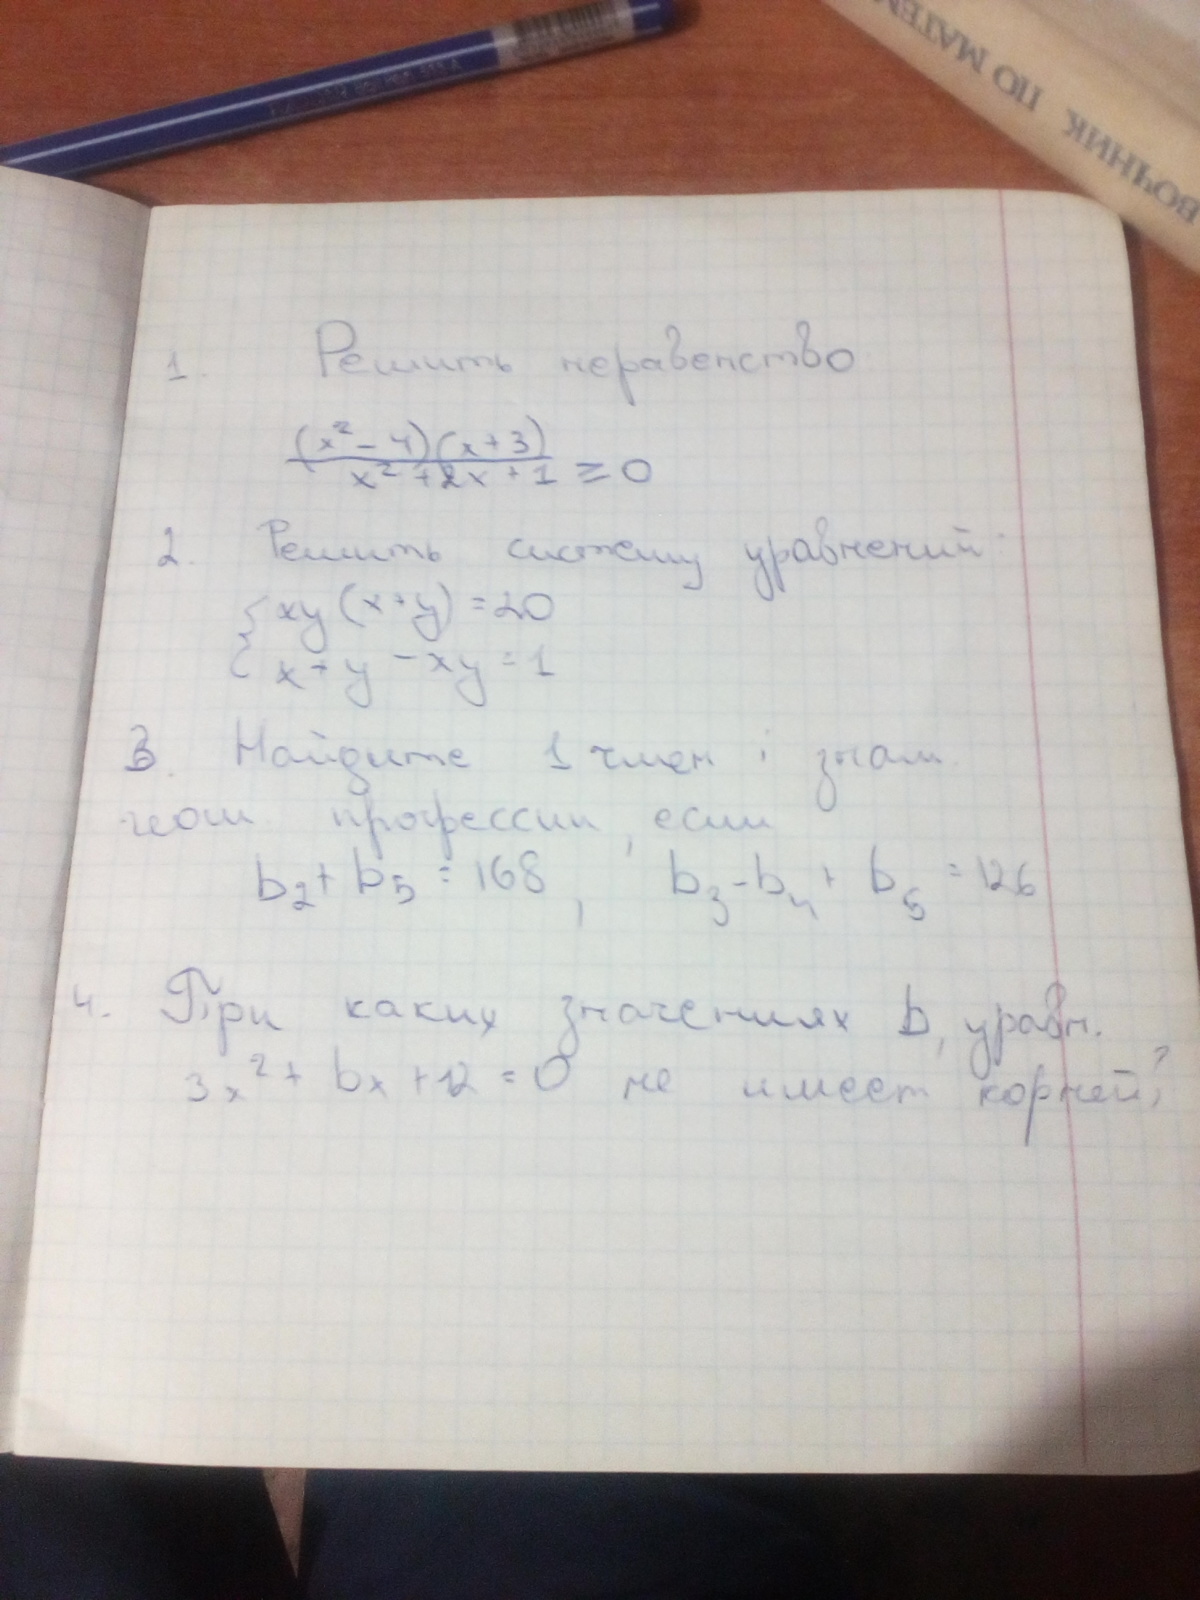 ВОЧНИК ПО МАТЕМ
1. Решить неравенство
(x² - 4)(x+3)
x² + 2x + 1 ≥ 0
2. Решить систему уравнений:
{ xy (x+y) = 20
x + y - xy = 1
3. Найдите 1 член і знам.
геом. прогрессии, если
b₂ + b₅ = 168, b₃ - b₄ + b₅ = 126
4. При каких значениях b, уравн.
3x² + bx + 12 = 0 не имеет корней?